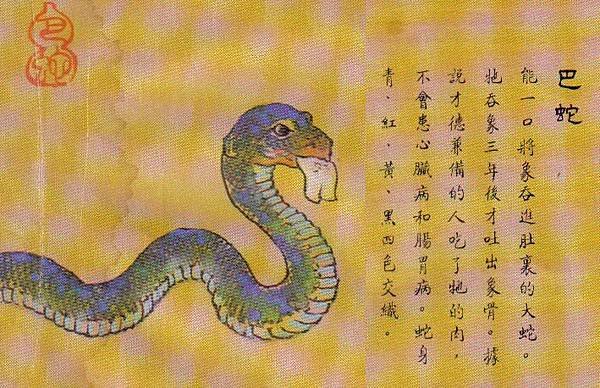 巴蛇
能一口將象吞進肚裏的大蛇。
牠吞象三年後才吐出象骨。據
說才德兼備的人吃了牠的肉，
不會患心臟病和腸胃病。蛇身
青、紅、黃、黑四色交織。
巴蛇